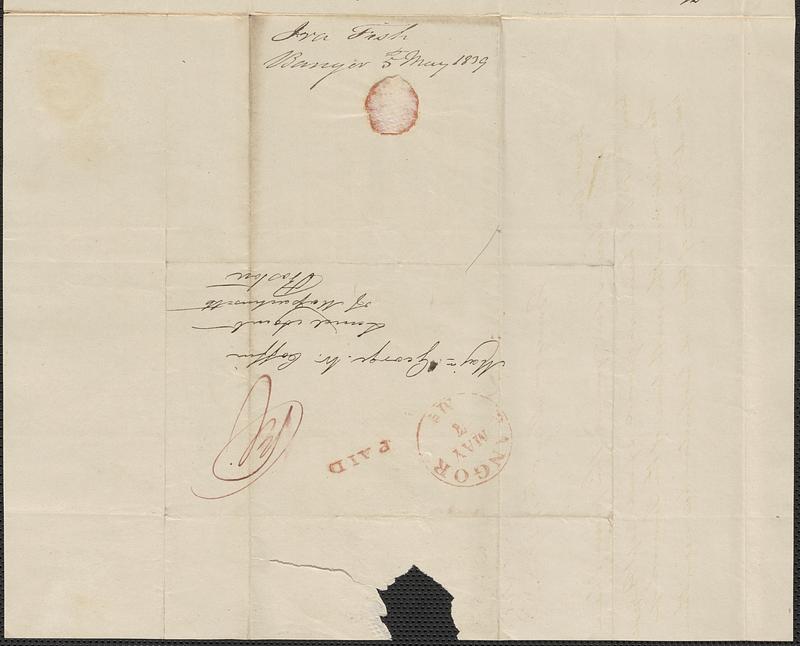 Ira Fish
Bangor 5 May 1839
Maj= George. W. Coffin
Land Agent
of Massachusetts
Boston
PAID
BANGOR
MAY
Me